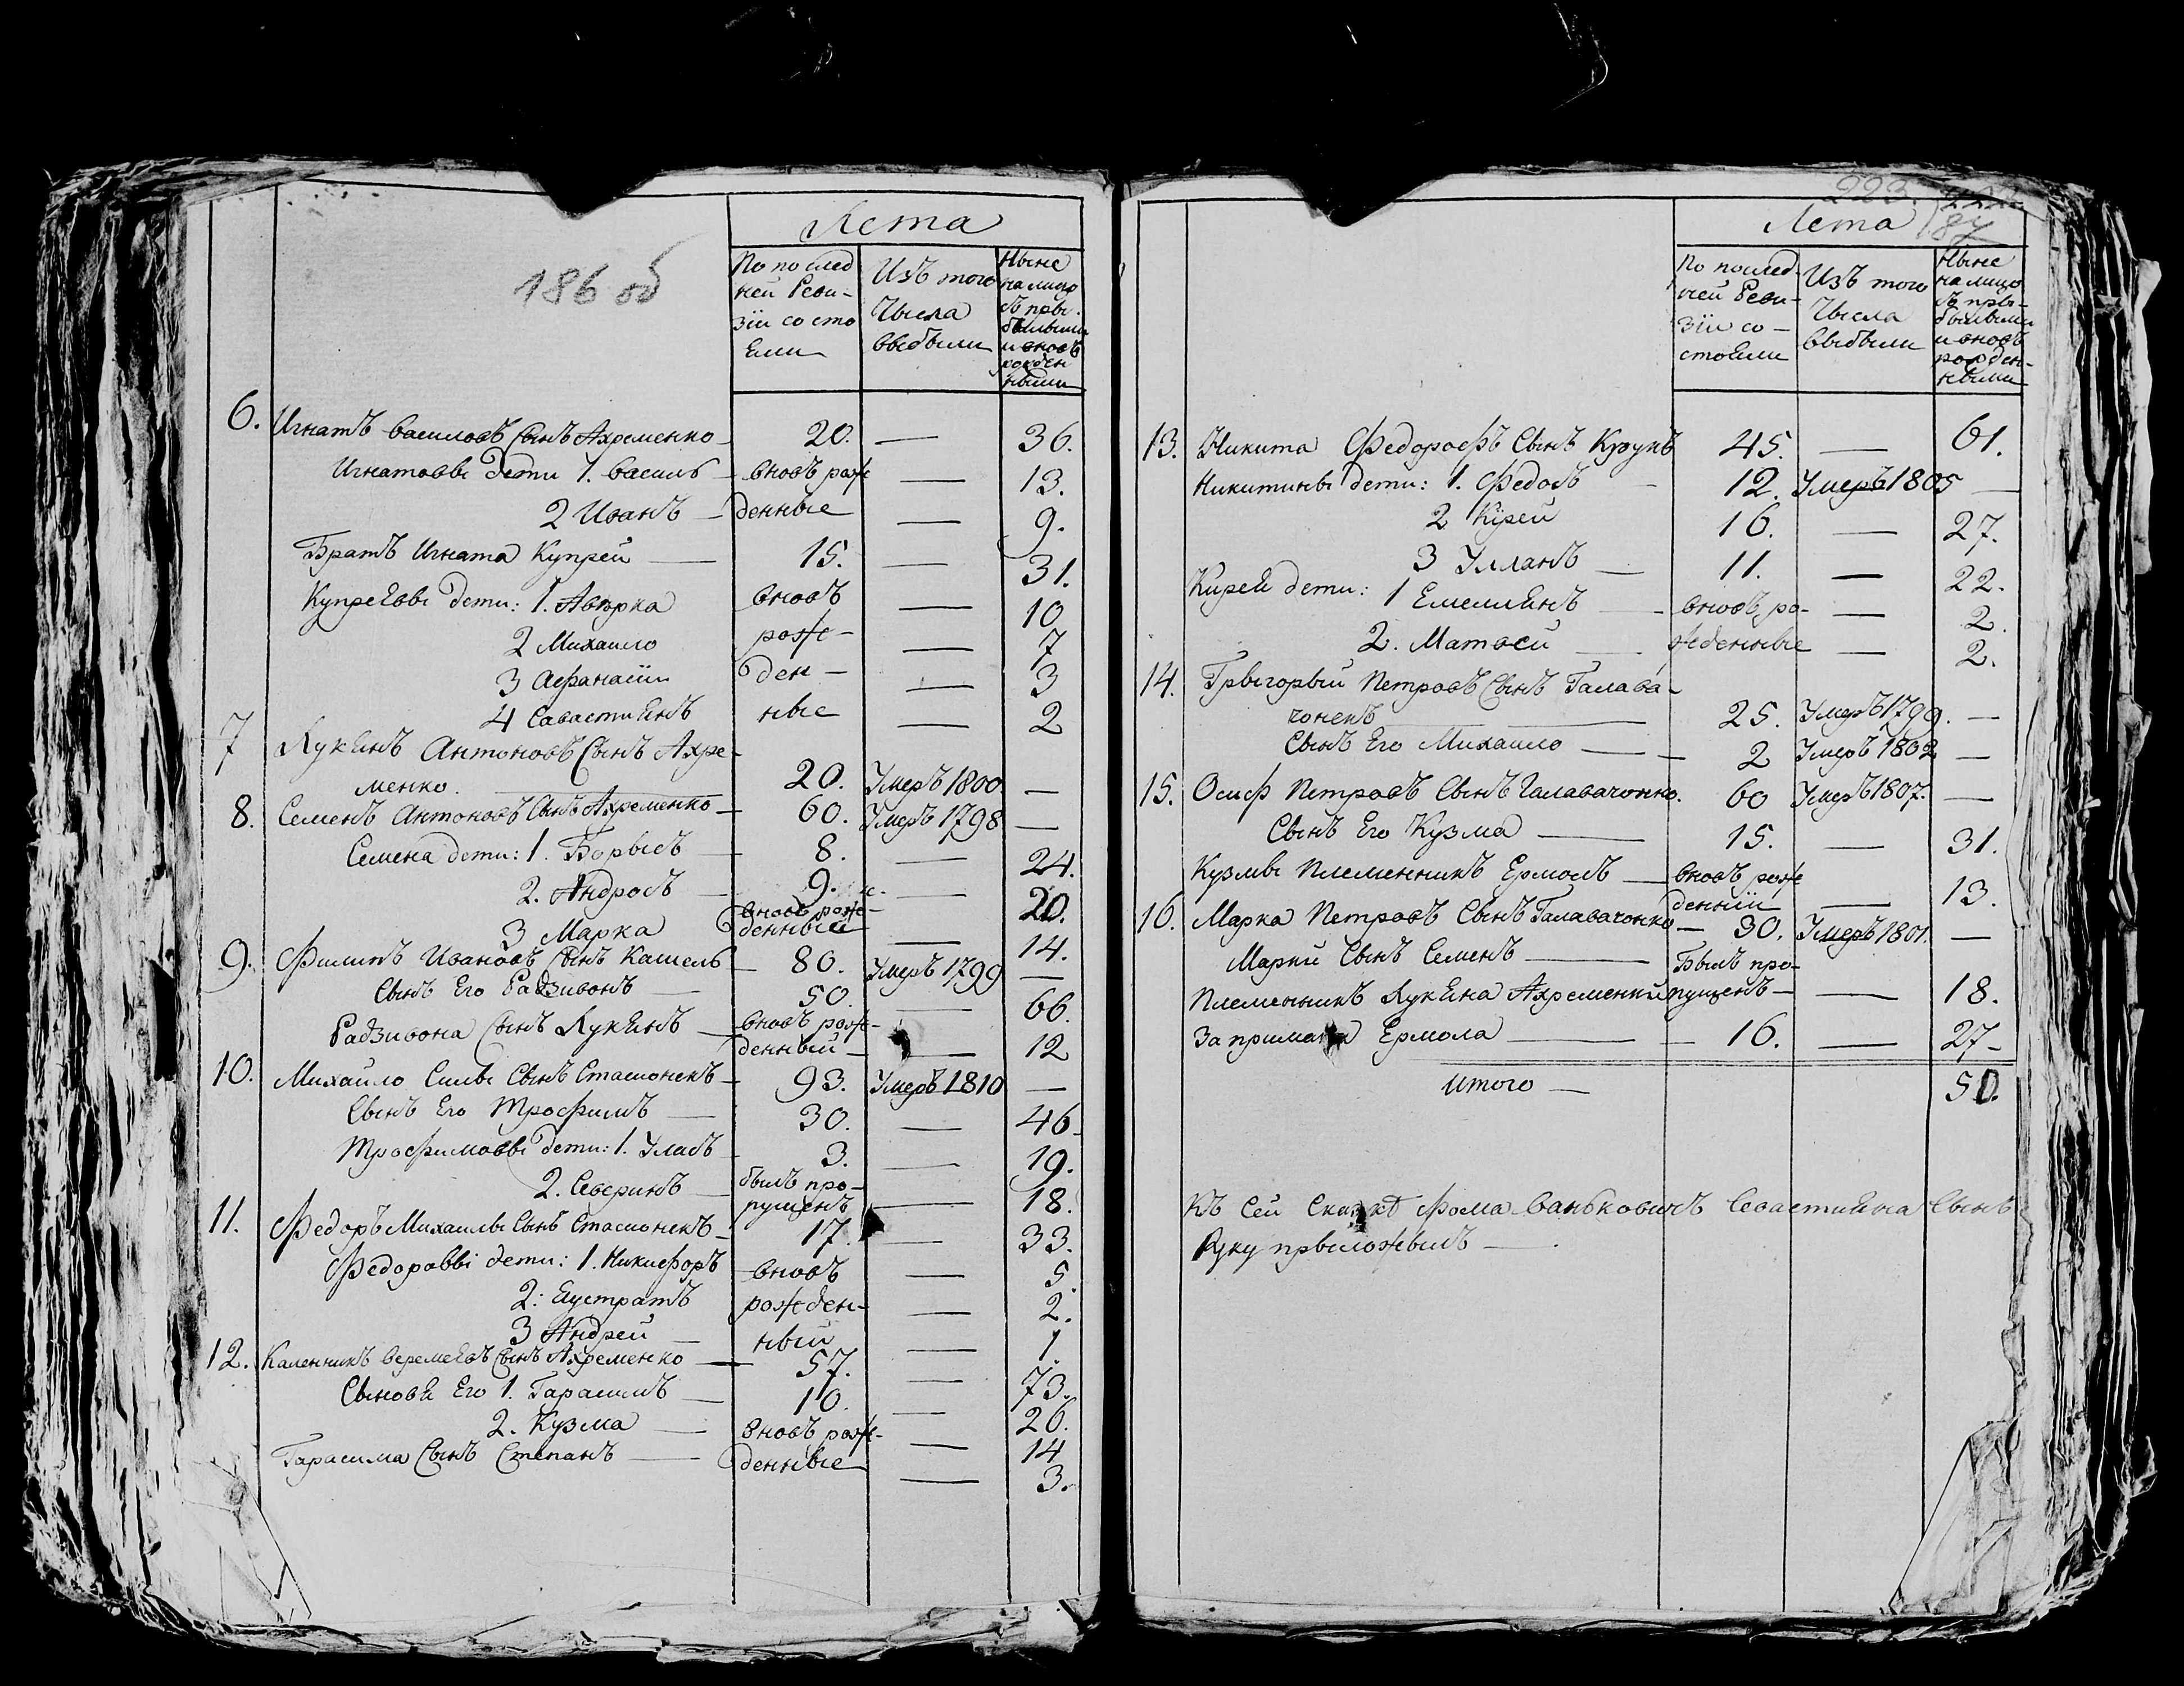 186 об
Лета
По послед
ней Реви-
зіи состо
Ели
Изъ того
Числа
выбыли
Ныне
налицо
съ при-
бывшими
и вновь
рожден
ными
6. Игнатъ василовъ Сынъ Ахременко 20. — 36.
Игнатовы дети 1. василь вновь рож — 13.
2 Иванъ — денные — 9.
Братъ Игната Купрей — 15. — 31.
Купреевы дети: 1. Аверка вновь — 10
2 Михаило рож- — 7
3 Афанасіи ден- — 3
4 Савастиянъ ные — 2
7 Лукянъ Антоновъ Сынъ Ахре-
менко. — 20. Умеръ 1800 —
8. Семенъ Антоновъ Сынъ Ахременко — 60. Умеръ 1798 —
Семена дети: 1. Борысъ — 8. — 24.
2. Андросъ — 9. — 20.
3 Марка вновь рож-
денный — 14.
9. Филипъ Ивановъ Сынъ Кашель — 80. Умеръ 1799 —
Сынъ Его Радзивонъ — 50. — 66.
Радзивона Сынъ Лукянъ — вновь рож-
денный — — 12
10. Михайло Силы Сынъ Стасионекъ — 93. Умеръ 1810 —
Сынъ Его Трофимъ — 30. — 46.
Трофимовы дети: 1. Уласъ 3. — 19.
2. Северинъ — былъ про-
пущенъ — 18.
11. Федоръ Михаилы Сынъ Стасионекъ — 17. — 33.
Федоровы дети: 1. Никифоръ вновь — 5.
2: Еустратъ рожден- — 2.
3 Андрей — ный — 1.
12. Каленникъ веремеевъ Сынъ Ахременко — 57. — 73.
Сыновя Его 1. Гарасимъ — 10. — 26.
2. Кузма — вновь рож- — 14
Гарасима Сынъ Степанъ — денные — 3.
223.
187
Лета
По послед-
ней Реви-
зіи со-
стояли
Изъ того
Числа
выбыли
Ныне
налицо
съ при-
бывшими
и вновь
рожден-
ными
13. Никита Федорофъ Сынъ Кузунъ 45. — 61.
Никитины дети: 1. Федосъ — 12. Умеръ 1805 —
2 Кирей 16. — 27.
3 Улланъ — 11. — 22.
Кирея дети: 1 Емелиянъ — вновь ро- — 2.
2. Матвей — жденные — 2.
14. Грыгорый Петровъ Сынъ Галава-
чонекъ — 25. Умеръ 1799. —
Сынъ Его Михаило — 2 Умеръ 1802 —
15. Осиф Петровъ Сынъ Галавачонко. 60 Умеръ 1807. —
Сынъ Его Кузма — 15. — 31.
Кузмы Племенникъ Ермолъ — вновь рож
денній — 13.
16. Марка Петровъ Сынъ Галавачонко — 30. Умеръ 1801. —
Марки Сынъ Семенъ — Былъ про-
пущенъ — — 18.
Племенникъ Лукяна Ахременки
За примака Ермола — 16. — 27-
Итого — 50.
Къ Сей Сказкѣ Фома Ванъковичъ Севастияна Сынъ
Руку прыложылъ —